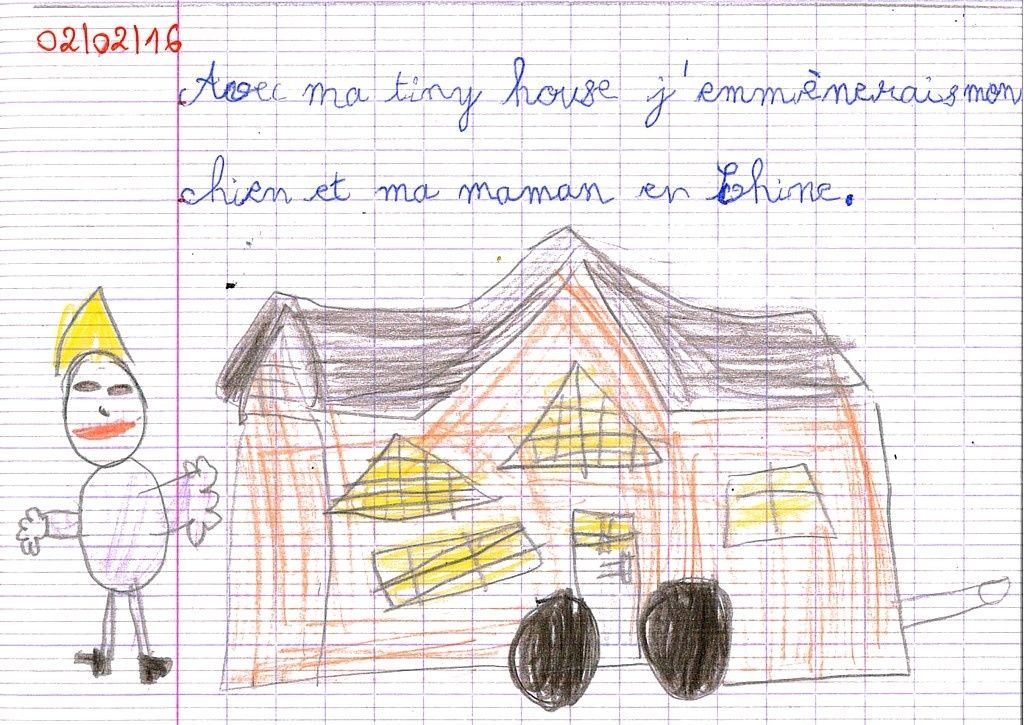 02/02/16
Avec ma tiny house j'emmènerais mon
chien et ma maman en Chine.